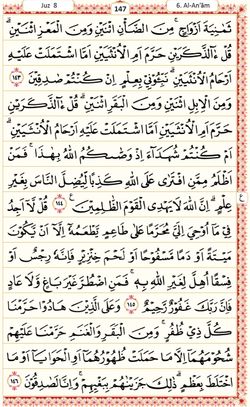 Juz 8
147
6. Al-An'ām
ثَمَٰنِيَةَ أَزْوَٰجٍ ۖ مِّنَ ٱلضَّأْنِ ٱثْنَيْنِ وَمِنَ ٱلْمَعْزِ ٱثْنَيْنِ ۗ
قُلْ ءَآلذَّكَرَيْنِ حَرَّمَ أَمِ ٱلْأُنثَيَيْنِ أَمَّا ٱشْتَمَلَتْ عَلَيْهِ
أَرْحَامُ ٱلْأُنثَيَيْنِ ۖ نَبِّـُٔونِى بِعِلْمٍ إِن كُنتُمْ صَٰدِقِينَ ١٤٣
وَمِنَ ٱلْإِبِلِ ٱثْنَيْنِ وَمِنَ ٱلْبَقَرِ ٱثْنَيْنِ ۗ قُلْ ءَآلذَّكَرَيْنِ
حَرَّمَ أَمِ ٱلْأُنثَيَيْنِ أَمَّا ٱشْتَمَلَتْ عَلَيْهِ أَرْحَامُ ٱلْأُنثَيَيْنِ ۖ
أَمْ كُنتُمْ شُهَدَآءَ إِذْ وَصَّىٰكُمُ ٱللَّهُ بِهَٰذَا ۚ فَمَنْ
أَظْلَمُ مِمَّنِ ٱفْتَرَىٰ عَلَى ٱللَّهِ كَذِبًا لِّيُضِلَّ ٱلنَّاسَ بِغَيْرِ
عِلْمٍ ۗ إِنَّ ٱللَّهَ لَا يَهْدِى ٱلْقَوْمَ ٱلظَّٰلِمِينَ ١٤٤ قُل لَّآ أَجِدُ
فِى مَآ أُوحِىَ إِلَىَّ مُحَرَّمًا عَلَىٰ طَاعِمٍ يَطْعَمُهُۥٓ إِلَّآ أَن يَكُونَ
مَيْتَةً أَوْ دَمًا مَّسْفُوحًا أَوْ لَحْمَ خِنزِيرٍ فَإِنَّهُۥ رِجْسٌ أَوْ
فِسْقًا أُهِلَّ لِغَيْرِ ٱللَّهِ بِهِۦ ۚ فَمَنِ ٱضْطُرَّ غَيْرَ بَاغٍ وَلَا عَادٍ
فَإِنَّ رَبَّكَ غَفُورٌ رَّحِيمٌ ١٤٥ وَعَلَى ٱلَّذِينَ هَادُوا۟ حَرَّمْنَا
كُلَّ ذِى ظُفُرٍ ۖ وَمِنَ ٱلْبَقَرِ وَٱلْغَنَمِ حَرَّمْنَا عَلَيْهِمْ
شُحُومَهُمَآ إِلَّا مَا حَمَلَتْ ظُهُورُهُمَآ أَوِ ٱلْحَوَايَآ أَوْ مَا
ٱخْتَلَطَ بِعَظْمٍ ۚ ذَٰلِكَ جَزَيْنَٰهُم بِبَغْيِهِمْ ۖ وَإِنَّا لَصَٰدِقُونَ ١٤٦